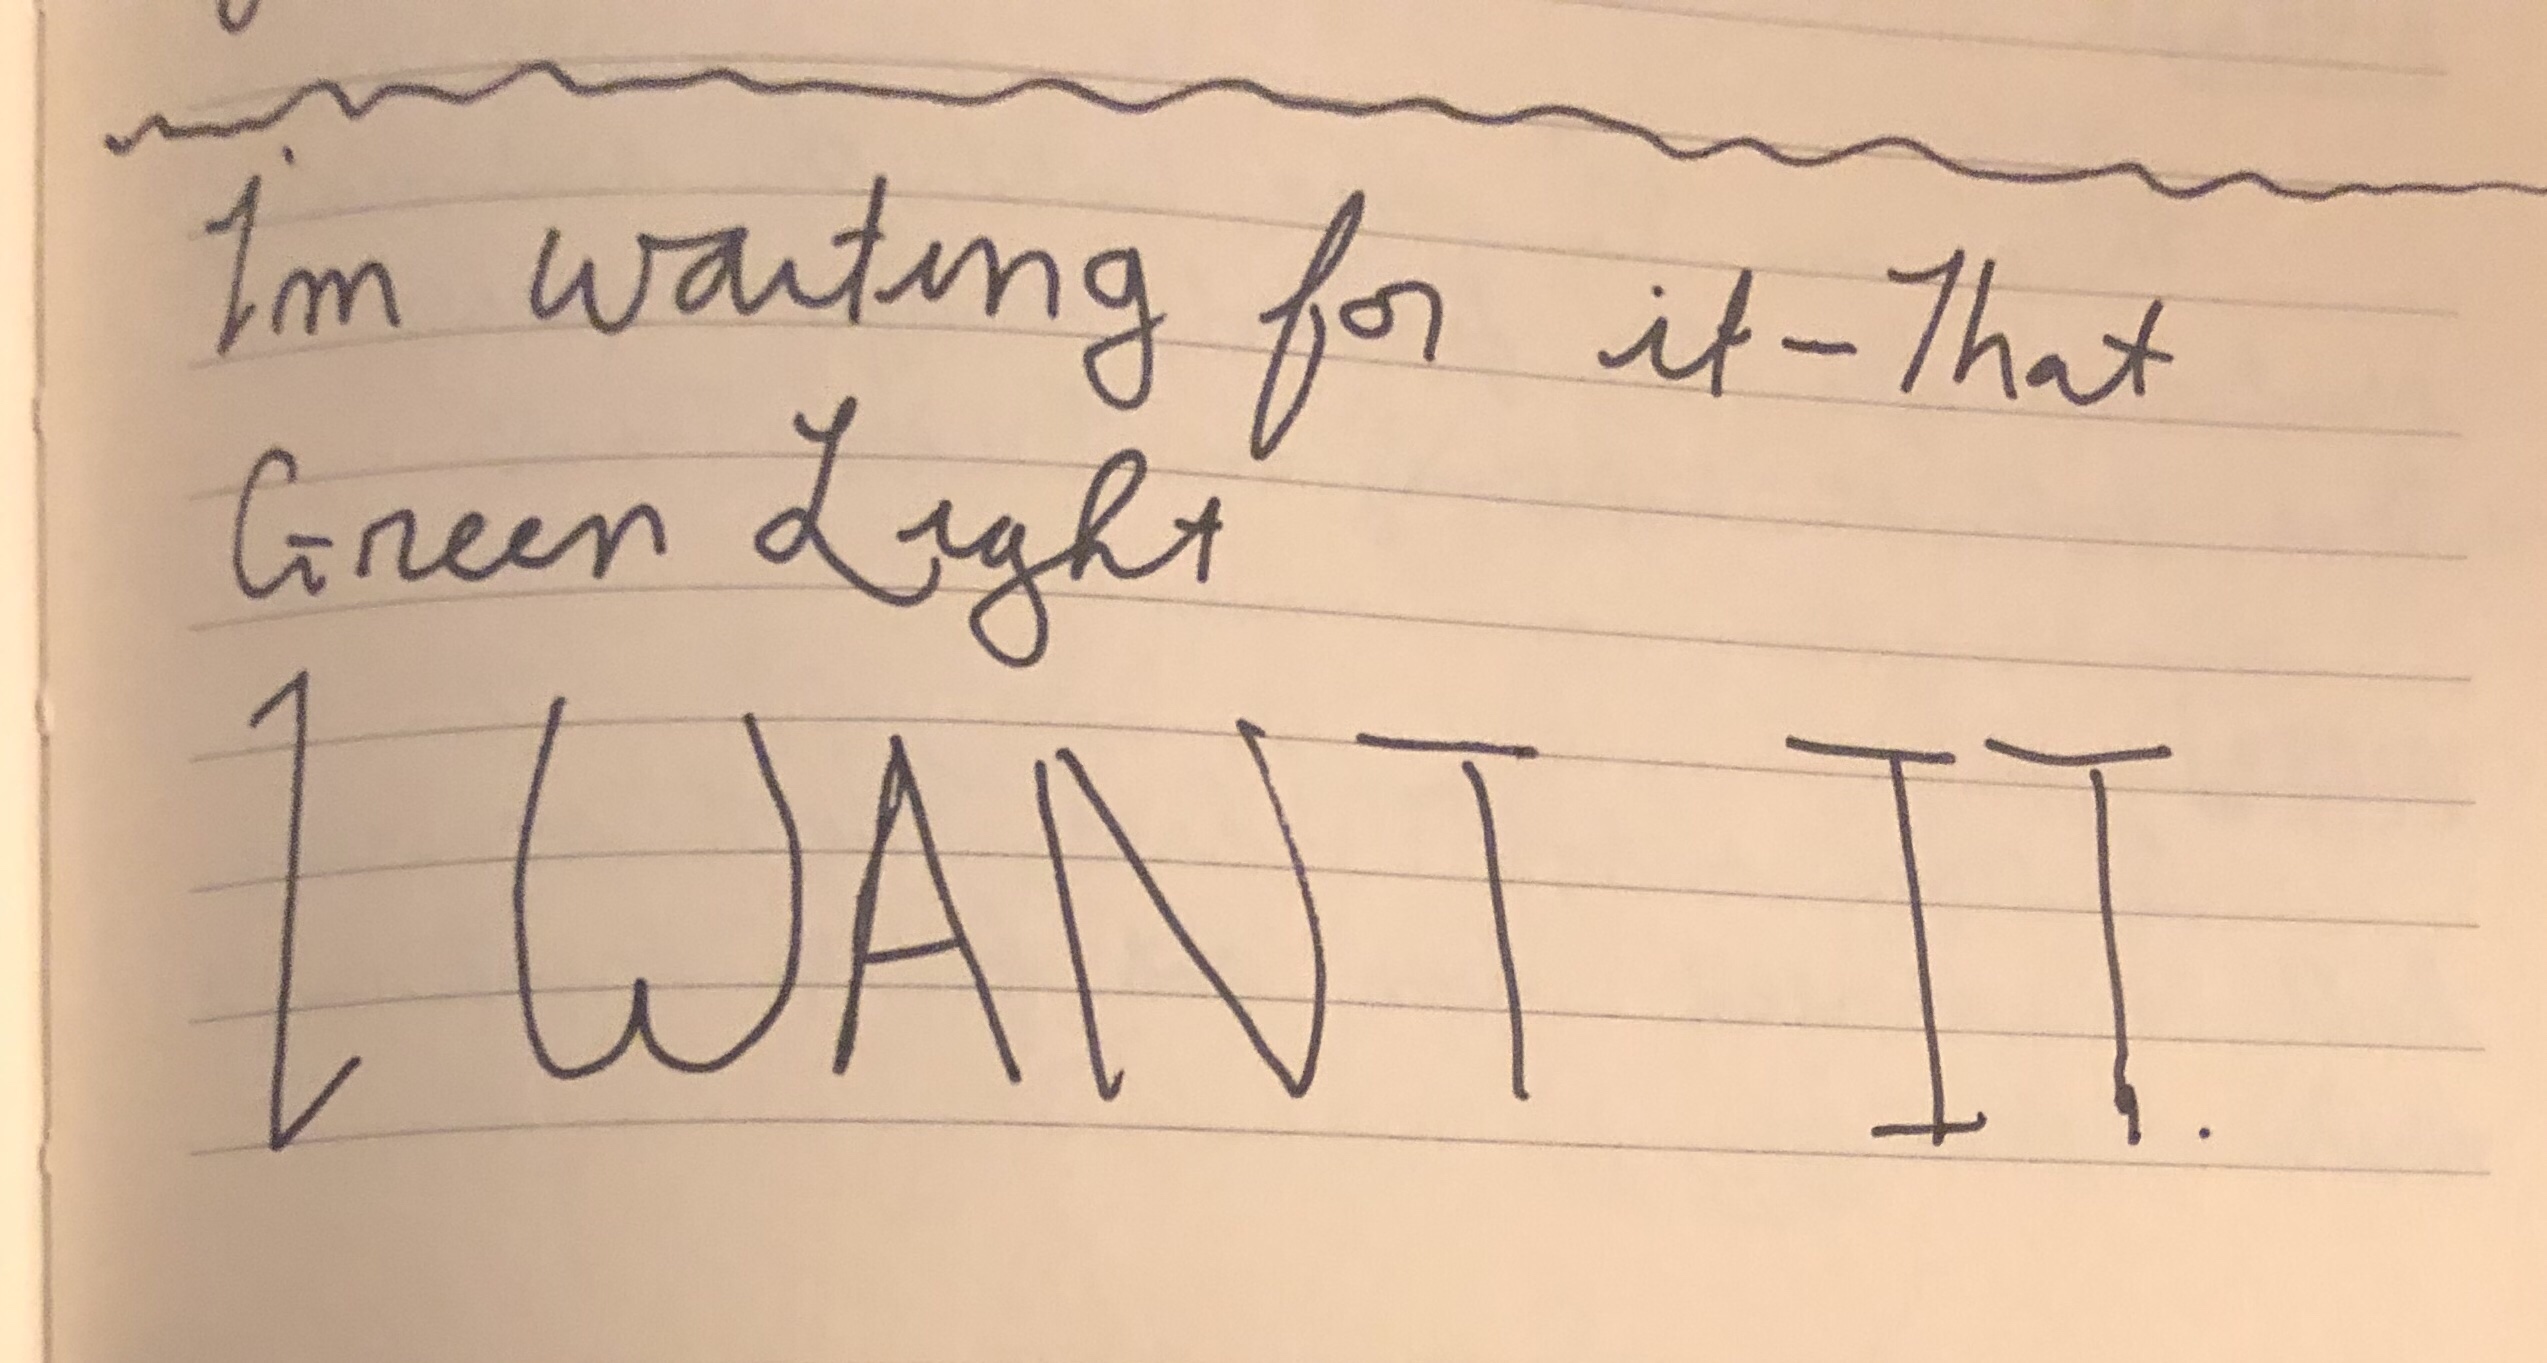 I'm waiting for it-That
Green Light
I WANT IT.